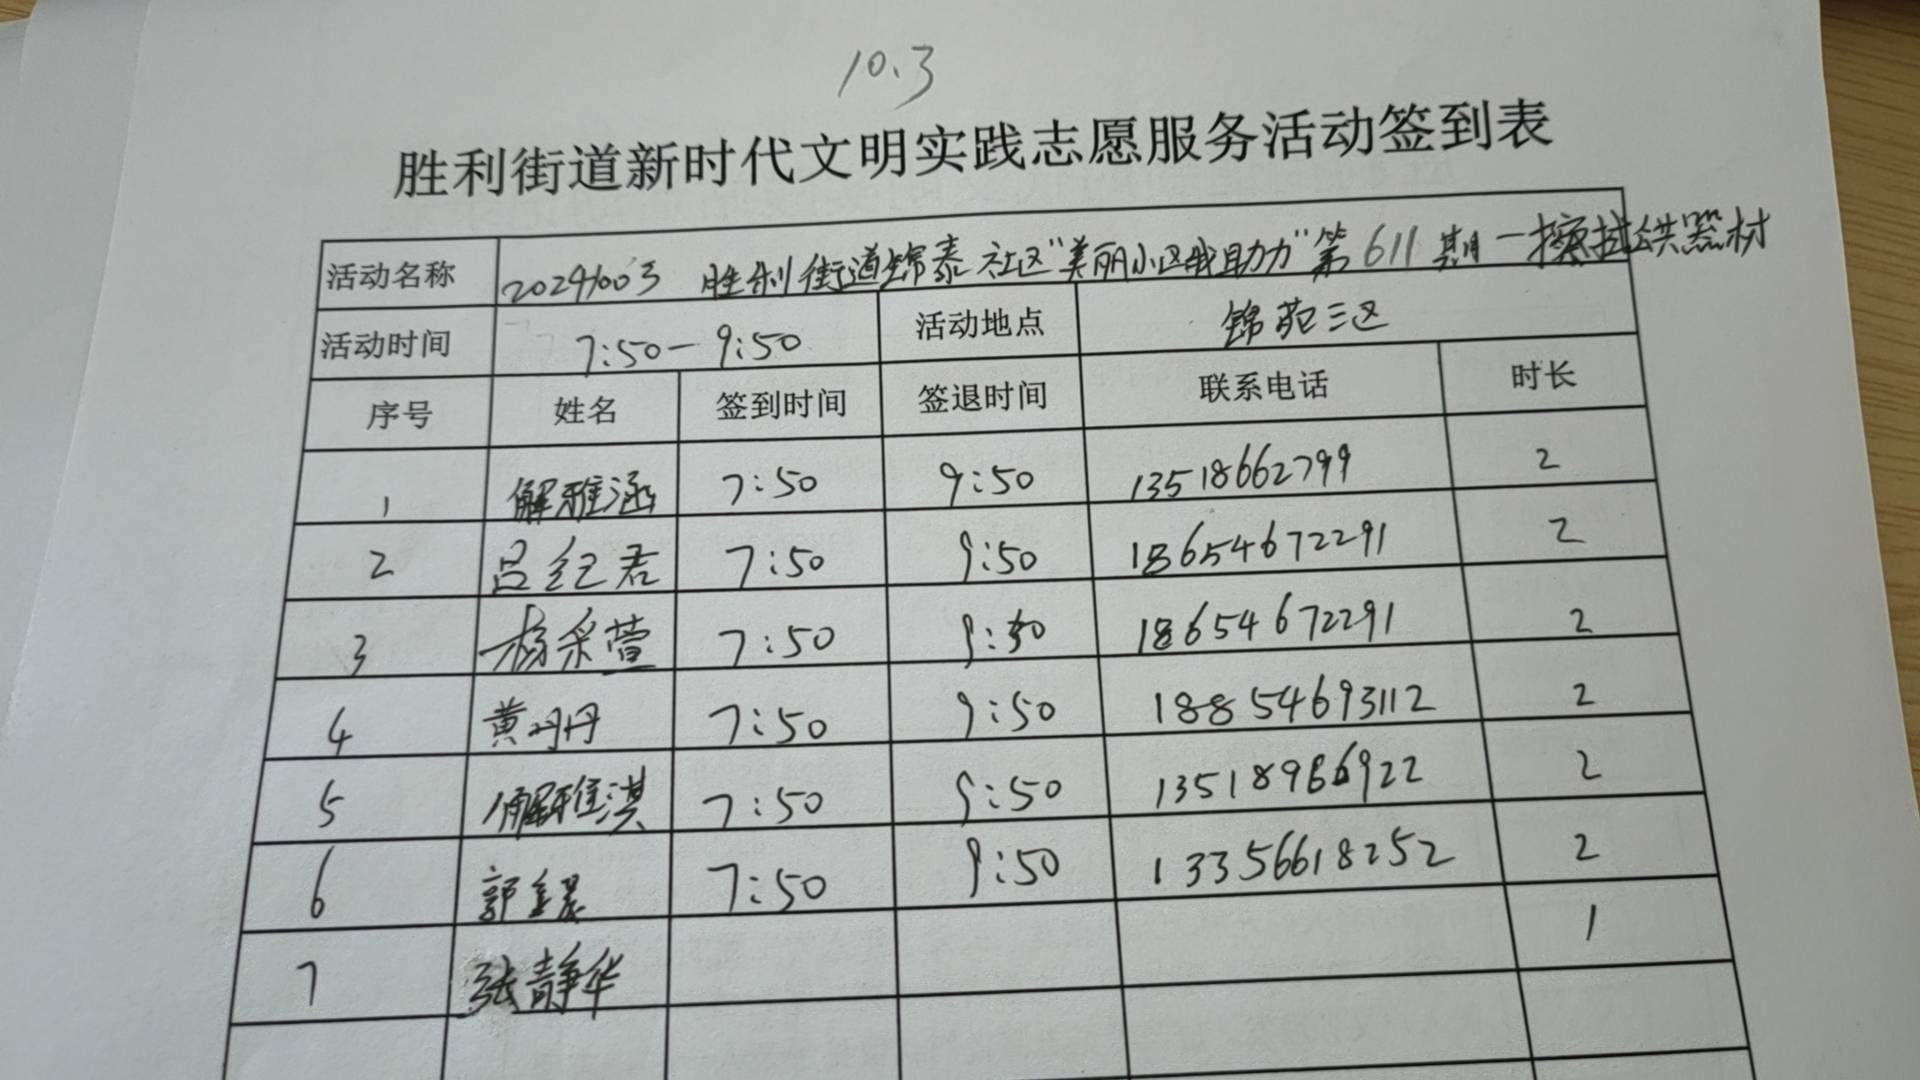 10.3
胜利街道新时代文明实践志愿服务活动签到表
活动名称 20241003 胜利街道锦泰社区"美丽小区我助力"第611期-擦拭健身器材
活动时间 7:50-9:50 活动地点 锦苑三区
序号 姓名 签到时间 签退时间 联系电话 时长
1 解雅涵 7:50 9:50 13518662799 2
2 吕纪君 7:50 9:50 18654672291 2
3 杨采萱 7:50 9:50 18654672291 2
4 黄丹丹 7:50 9:50 18854693112 2
5 解雅淇 7:50 9:50 13518966922 2
6 郭 7:50 9:50 13356618252 2
7 张静华 1